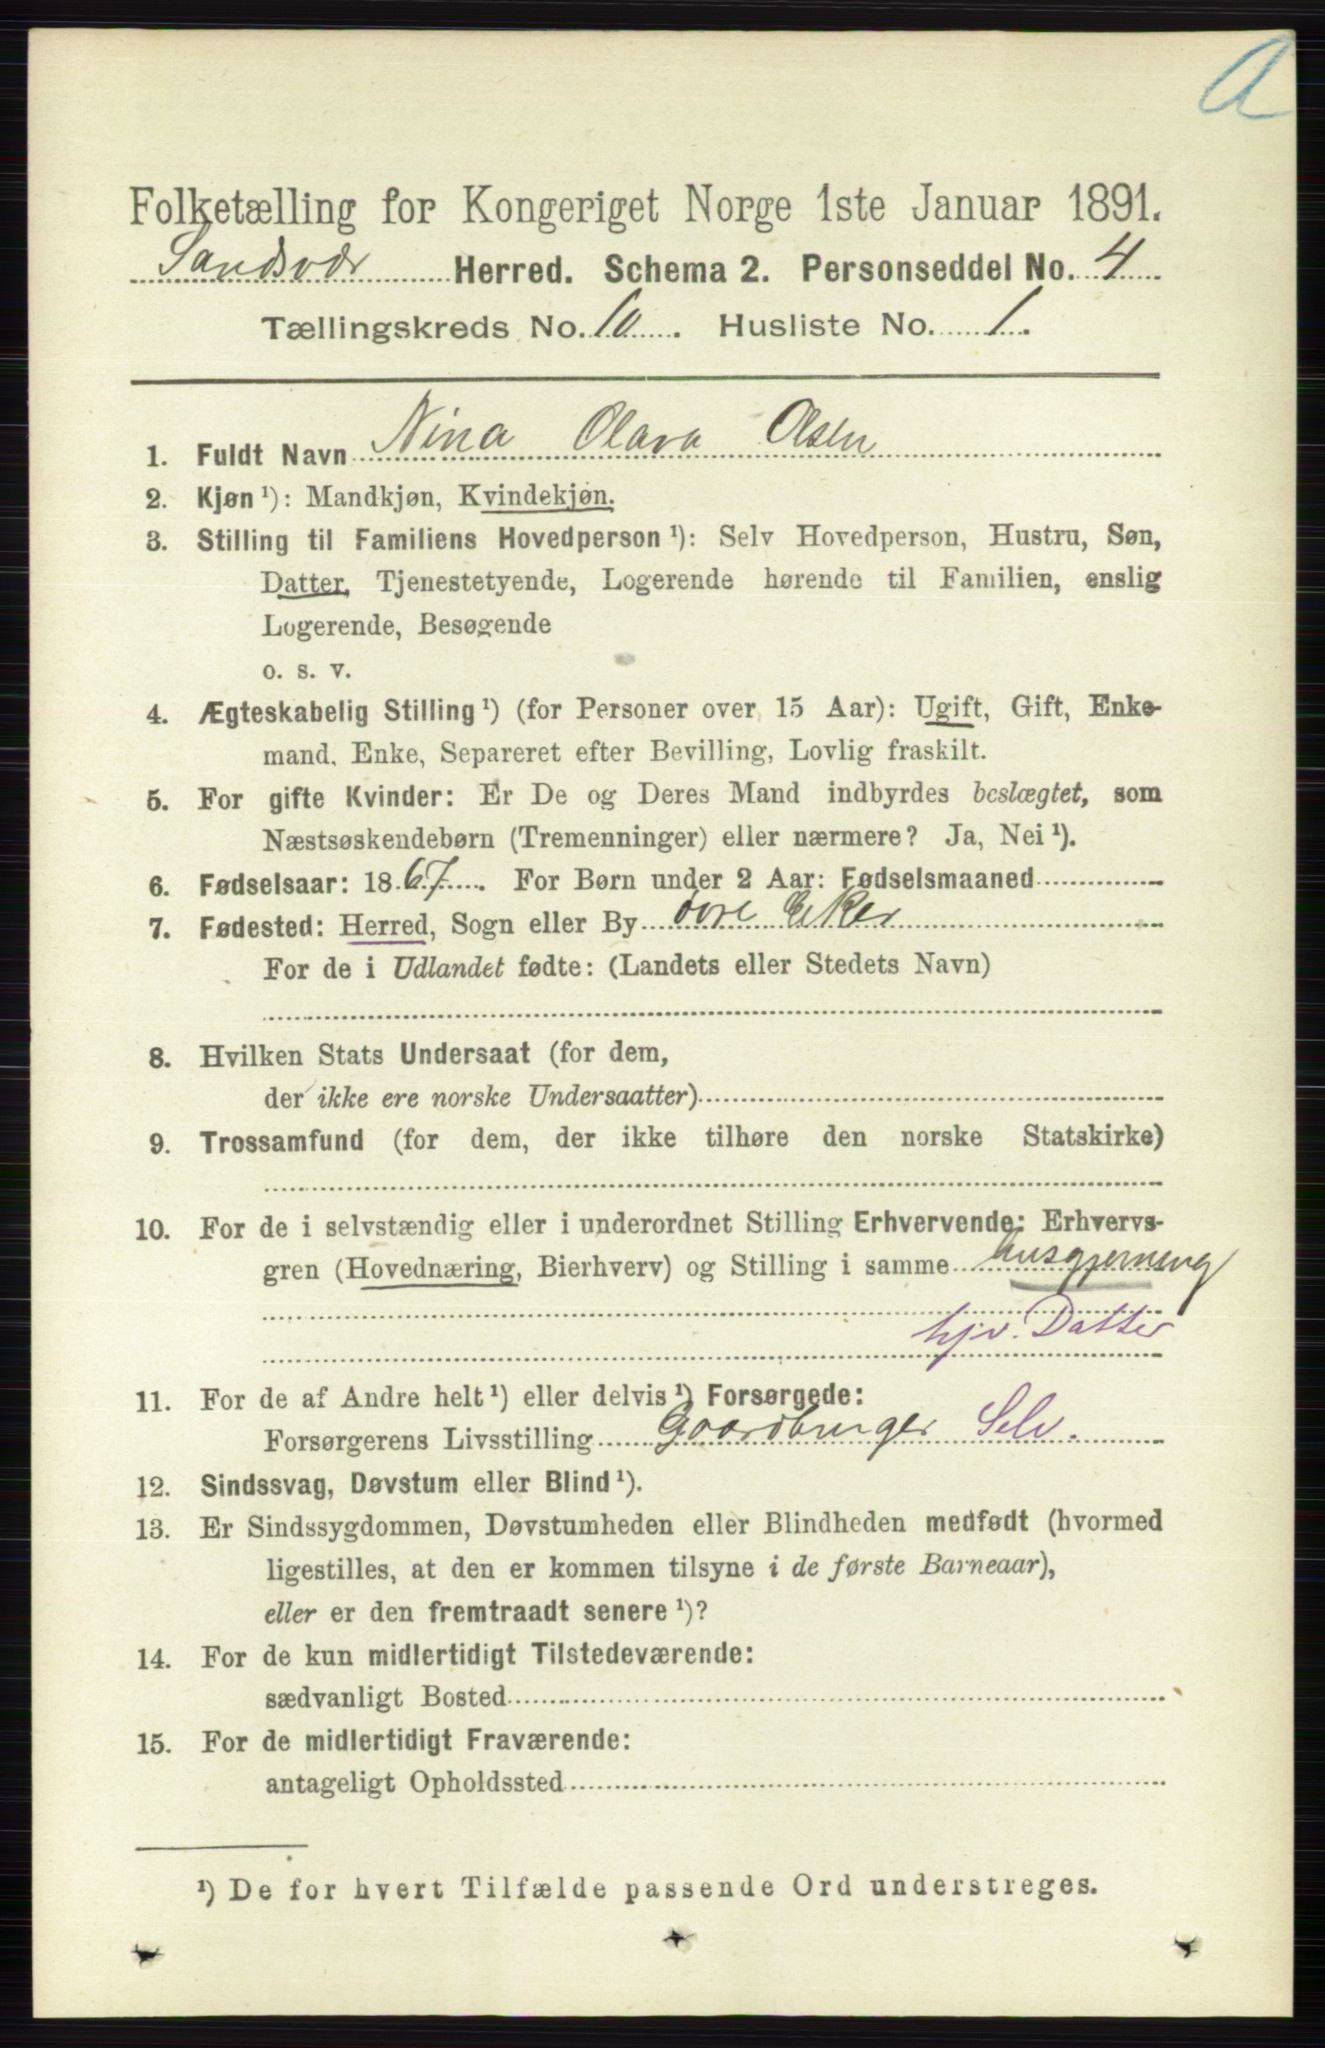 A
Folketælling for Kongeriget Norge 1ste Januar 1891.
Sandsvær Herred. Schema 2. Personseddel No. 4
Tællingskreds No. 10. Husliste No. 1.
1. Fuldt Navn Nina Olava Olsen
2. Kjøn ¹): Mandkjøn, Kvindekjøn.
3. Stilling til Familiens Hovedperson ¹): Selv Hovedperson, Hustru, Søn,
Datter, Tjenestetyende, Logerende hørende til Familien, enslig
Logerende, Besøgende
o. s. v.
4. Ægteskabelig Stilling ¹) (for Personer over 15 Aar): Ugift, Gift, Enke-
mand, Enke, Separeret efter Bevilling, Lovlig fraskilt.
5. For gifte Kvinder: Er De og Deres Mand indbyrdes beslægtet, som
Næstsøskendebørn (Tremenninger) eller nærmere? Ja, Nei ¹).
6. Fødselsaar: 1867. For Børn under 2 Aar: Fødselsmaaned
7. Fødested: Herred, Sogn eller By øvre Eker
For de i Udlandet fødte: (Landets eller Stedets Navn)
8. Hvilken Stats Undersaat (for dem,
der ikke ere norske Undersaatter)
9. Trossamfund (for dem, der ikke tilhøre den norske Statskirke)
10. For de i selvstændig eller i underordnet Stilling Erhvervende: Erhvervs-
gren (Hovednæring, Bierhverv) og Stilling i samme husgjerning
hjv. Datter
11. For de af Andre helt ¹) eller delvis ¹) Forsørgede:
Forsørgerens Livsstilling Gaardbruger Selv.
12. Sindssvag, Døvstum eller Blind ¹).
13. Er Sindssygdommen, Døvstumheden eller Blindheden medfødt (hvormed
ligestilles, at den er kommen tilsyne i de første Barneaar),
eller er den fremtraadt senere ¹)?
14. For de kun midlertidigt Tilstedeværende:
sædvanligt Bosted
15. For de midlertidigt Fraværende:
antageligt Opholdssted
¹) De for hvert Tilfælde passende Ord understreges.